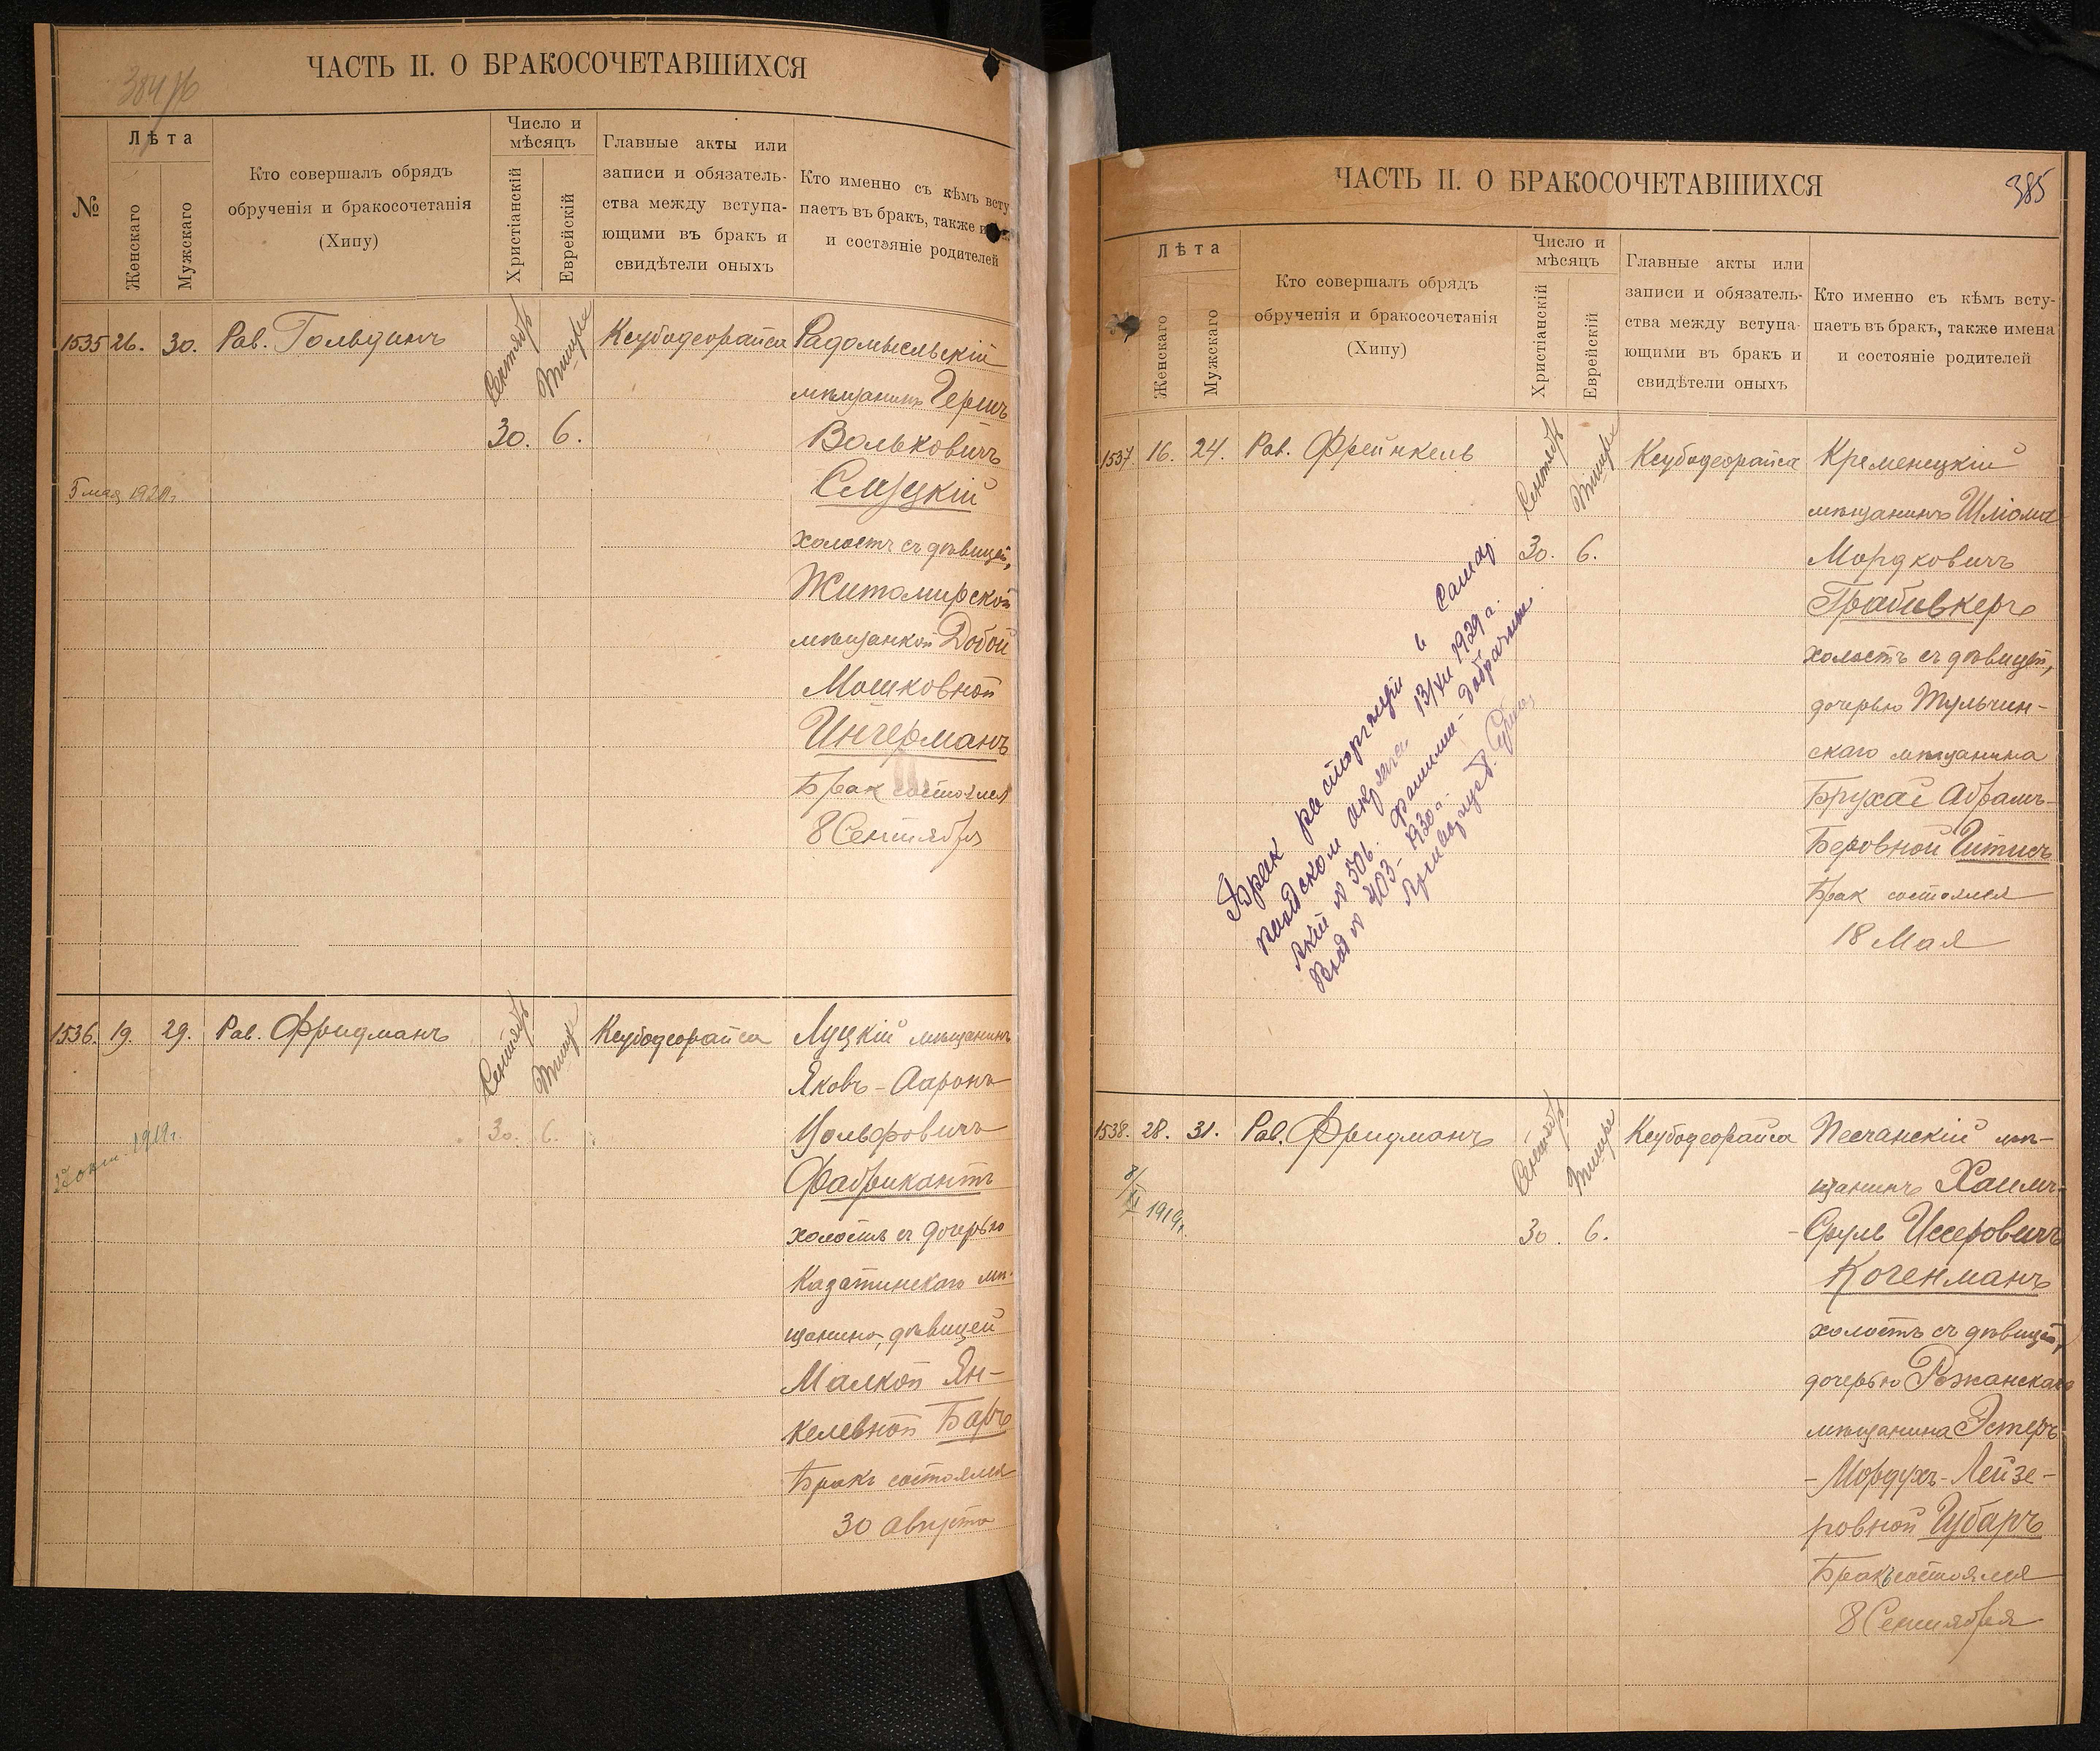 384 об
ЧАСТЬ II. О БРАКОСОЧЕТАВШИХСЯ
№
Лѣта
Женскаго
Мужскаго
Кто совершалъ обрядъ
обрученія и бракосочетанія
(Хипу)
Число и
мѣсяцъ
Христіанскій
Еврейскій
Главные акты или
записи и обязатель-
ства между вступа-
ющими въ бракъ и
свидѣтели оныхъ
Кто именно съ кѣмъ всту
паетъ въ бракъ, также и
и состояніе родителей
1535 26. 30. Рав. Гольдинъ
Сентябрь
Тишре
30. 6.
Ксубодеорайса
Радомысльскій
мѣщанинъ Гершъ
Вольковичъ
Слуцкій
холостъ съ дѣвицей,
Житомирской
мѣщанкой Добой
Мошковной
Ингерманъ
Бракъ состоялся
8 Сентября
5 мая 1920г.
1536. 19. 29. Рав. Фридманъ
Сентябрь
Тишре
30. 6.
Ксубодеорайса
Луцкій мѣщанинъ
Яковъ-Ааронъ
Вольфовичъ
Фабрикантъ
холостъ съ дочерью
Казатинскаго мѣ-
щанина, дѣвицей
Малкой Ян-
келевной Баръ
Бракъ состоялся
30 августа
1919г.
ЧАСТЬ II. О БРАКОСОЧЕТАВШИХСЯ
385
Лѣта
Женскаго
Мужскаго
Кто совершалъ обрядъ
обрученія и бракосочетанія
(Хипу)
Число и
мѣсяцъ
Христіанскій
Еврейскій
Главные акты или
записи и обязатель-
ства между вступа-
ющими въ бракъ и
свидѣтели оныхъ
Кто именно съ кѣмъ всту-
паетъ въ бракъ, также имена
и состояніе родителей
1537. 16. 24. Рав. Фрейнкель
Сентябрь
Тишре
30. 6.
Ксубодеорайса
Кременецкій
мѣщанинъ Шлiома
Мордковичъ
Грабивкеръ
холостъ съ дѣвицей,
дочерью Тульчин-
скаго мѣщанина
Брухай Абрамъ-
Беровной Гитисъ
Бракъ состоялся
18 Мая
Брак расторгнут в
13/XII 1929 г.
№ 506. фамилии - добрачные.
№ 403 - 1930 г.
1538. 28. 31. Рав. Фридманъ
Сентябрь
Тишре
30. 6.
Ксубодеорайса
Песчанскій мѣ-
щанинъ Хаимъ-
-Сруль Иссеровичъ
Когенманъ
холостъ съ дѣвицей,
дочерью Рожанскаго
мѣщанина Эстеръ-
-Мордухъ-Лейзе-
ровной Губаръ
Бракъ состоялся
8 Сентября
8/XI 1919г.